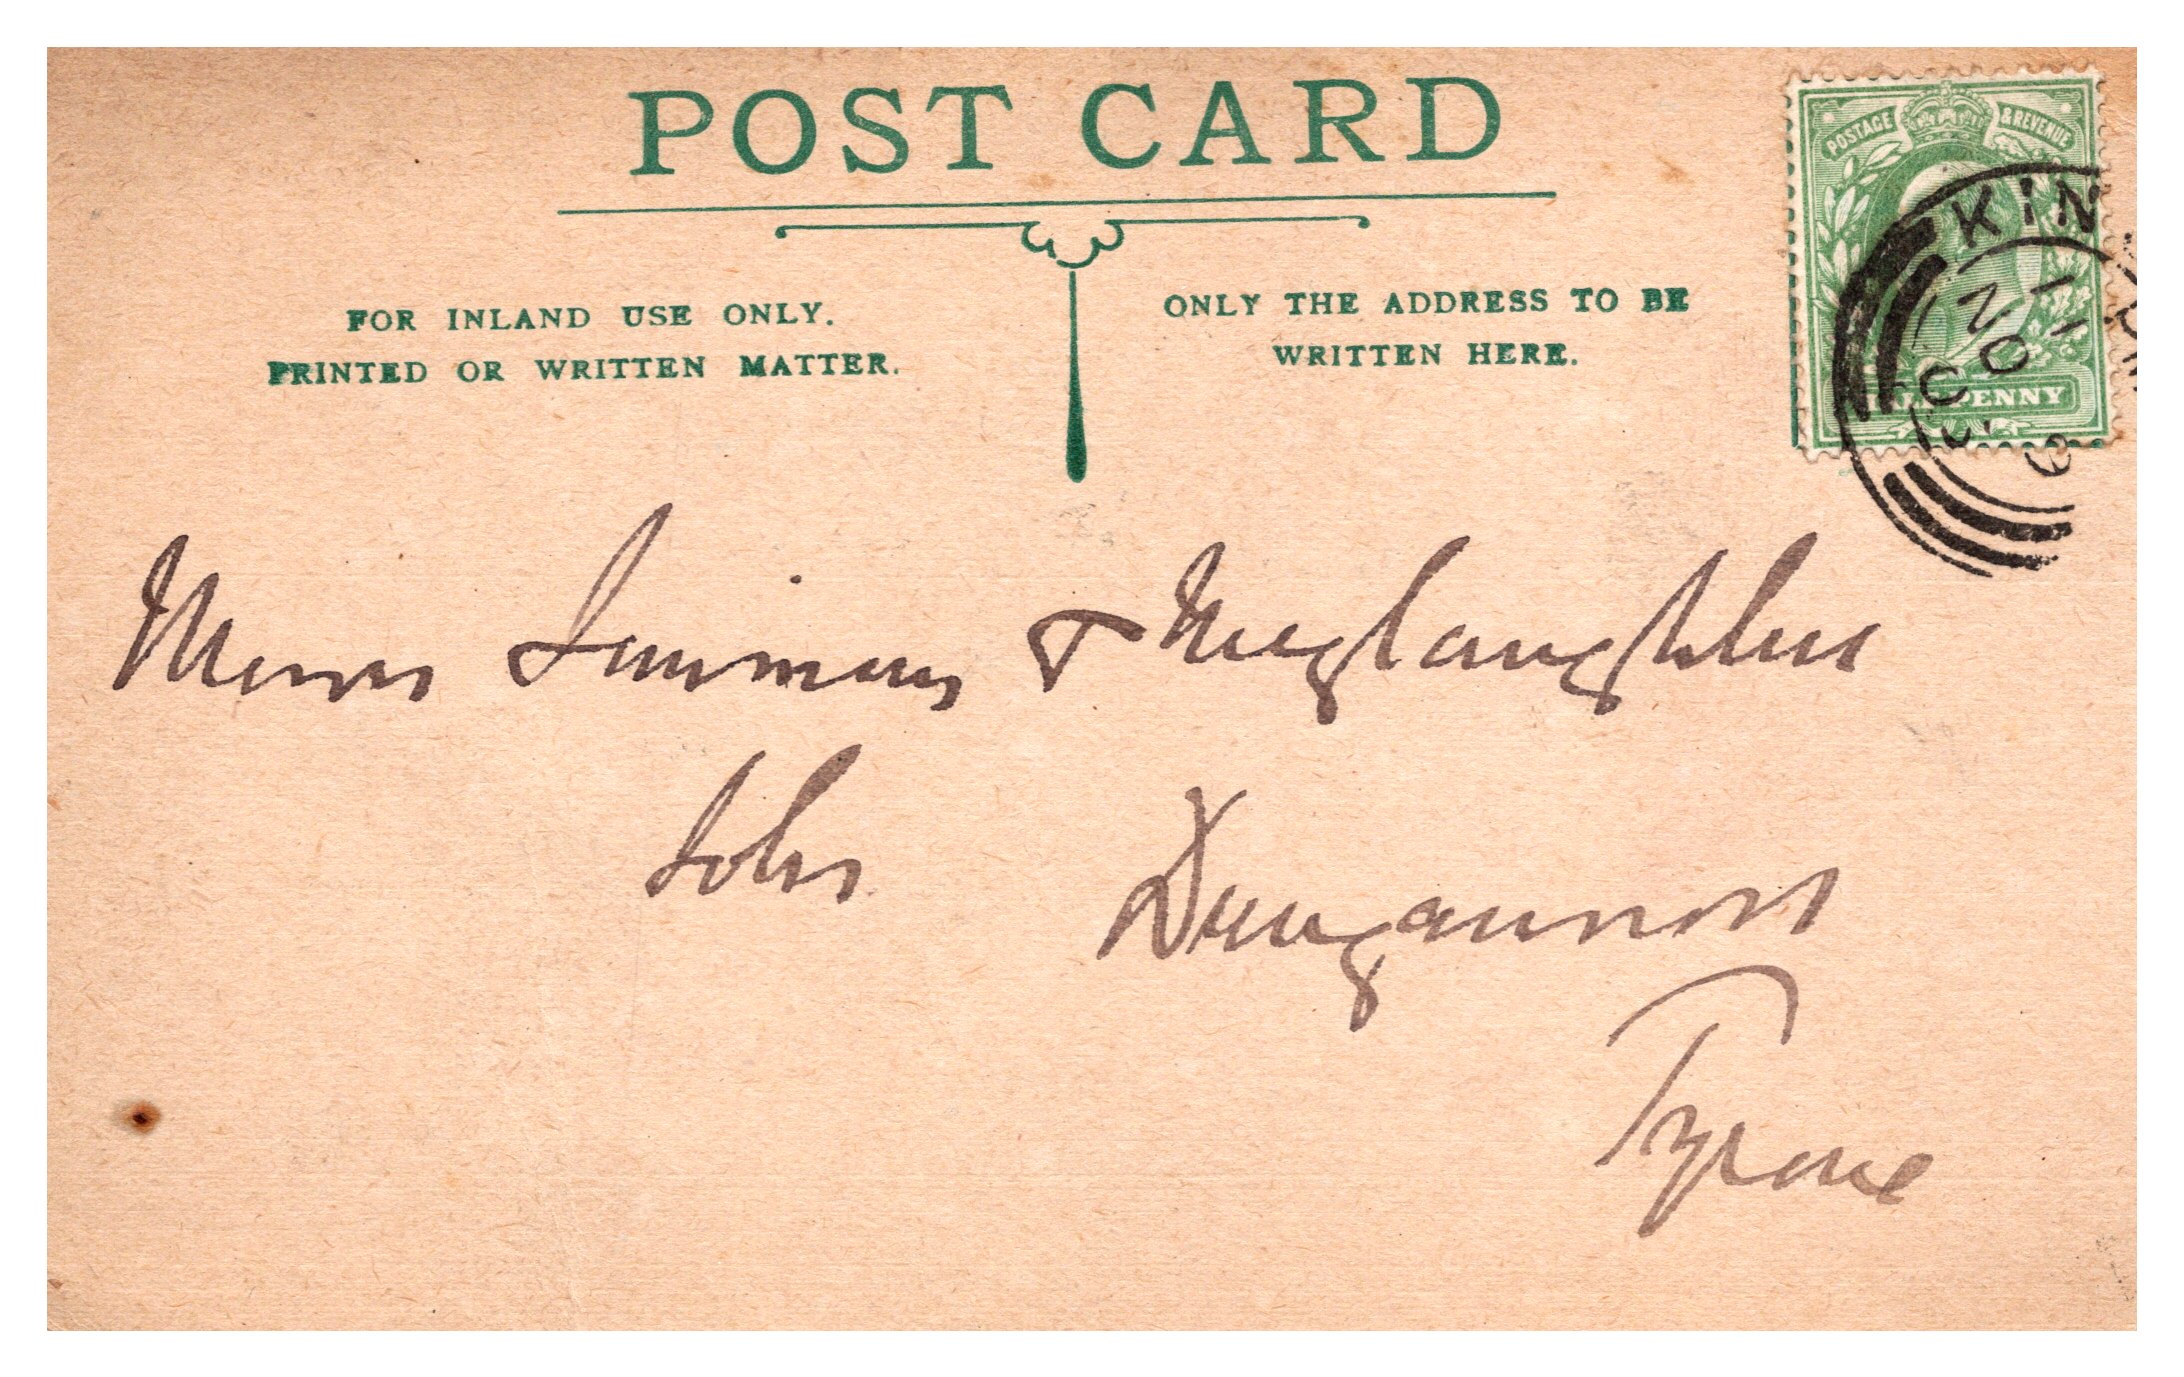 POST CARD
FOR INLAND USE ONLY.
PRINTED OR WRITTEN MATTER.
ONLY THE ADDRESS TO BE
WRITTEN HERE.
POSTAGE & REVENUE
HALFPENNY
KIN
11
NO
Messrs Simmons & Meglaughlin
Solrs
Dungannon
Tyrone